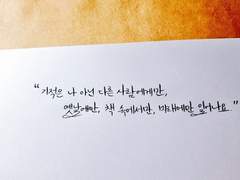 "기적은 나 아닌 다른 사람에게만,
옛날에만, 책 속에서만, 미래에만 일어나요."